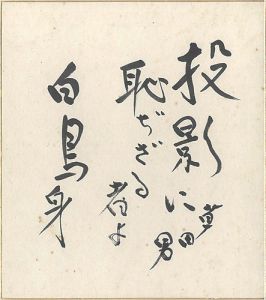 投影に
恥ぢざる者よ
白鳥身
草田男